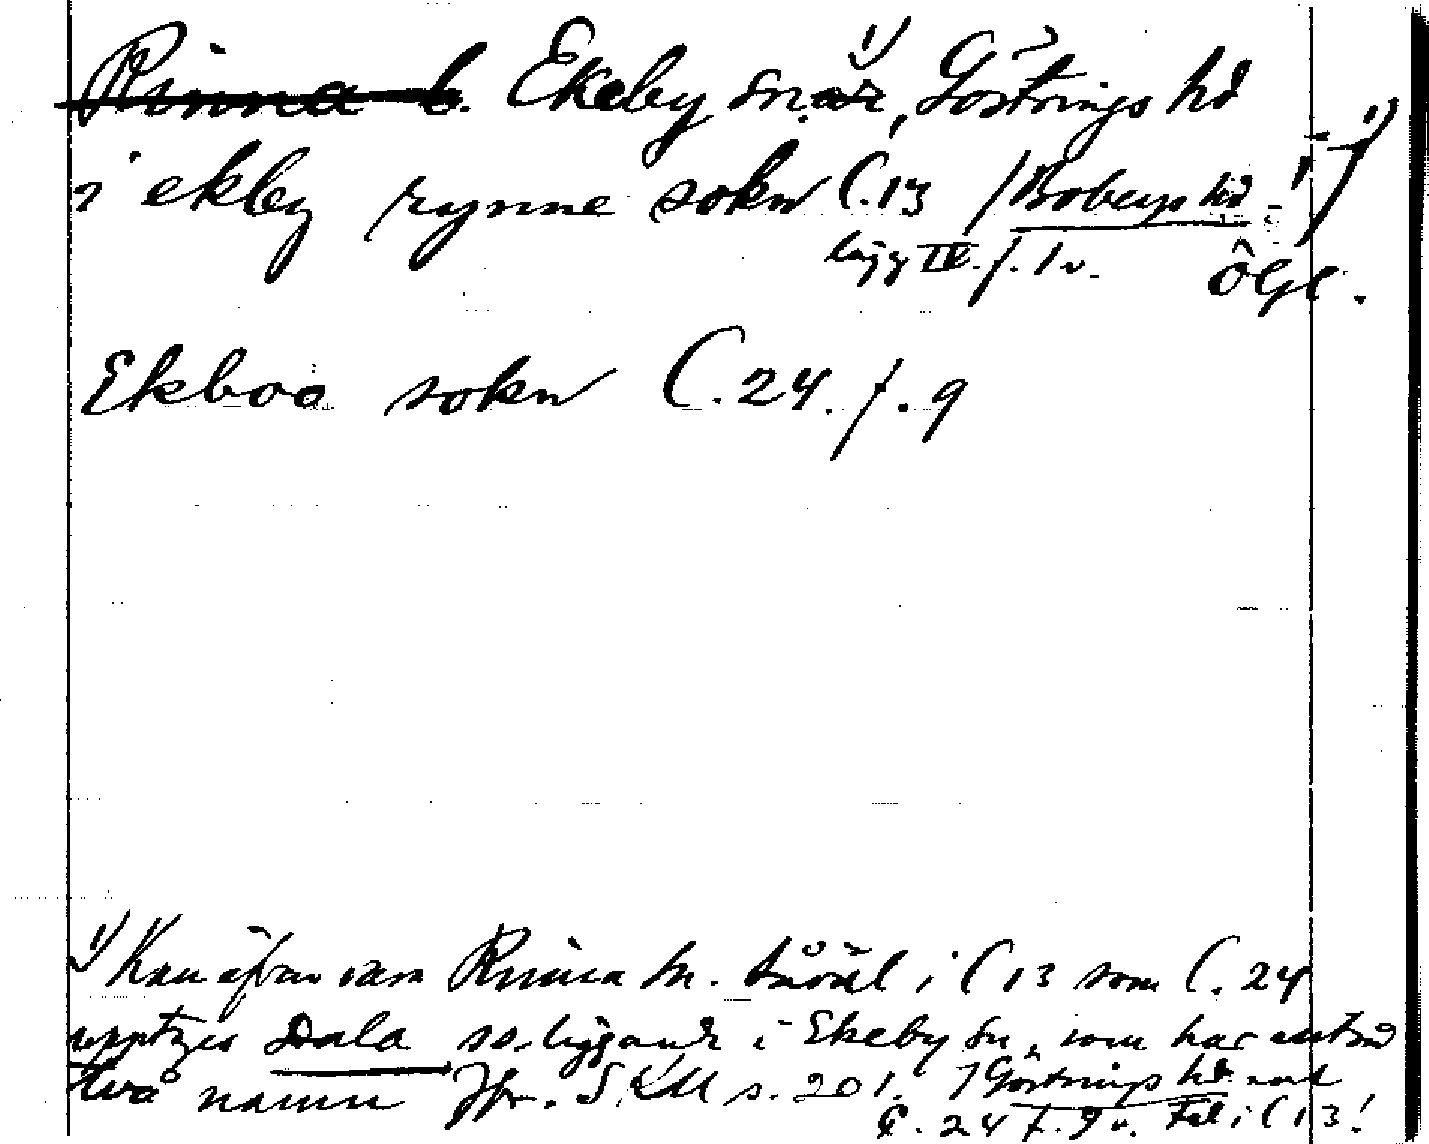 Rinna l. Ekeby sn 1), Göstrings hd
i ekby rynne sokn C.13 /Bobergs hd 1)
lägg IV. f. 1 v. ÖGL.
Ekboa sokn C.24. f. 9
1) Kan även vara Rinna sn. Såväl i C 13 som C. 24
upptages Dala so. liggande i Ekeby sn, som har
två namn Jfr. SRM s. 201. Göstrings hd
C. 24 f. 9 v. Fel i C 13!